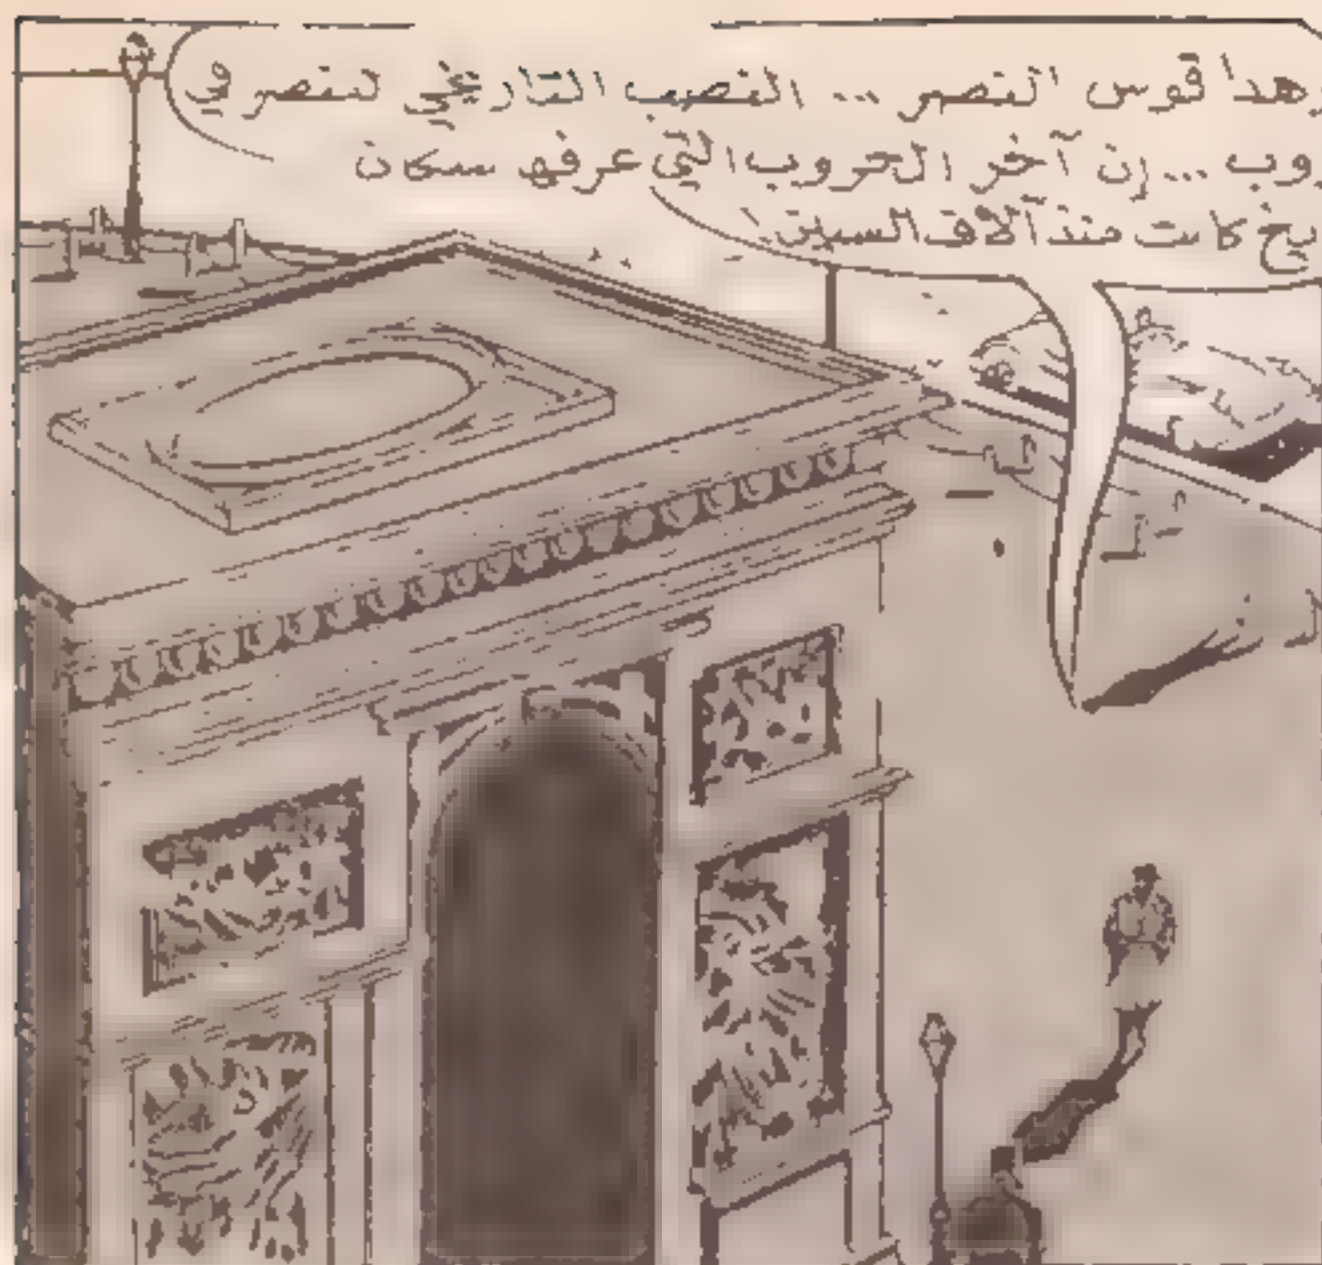 وهذا قوس النصر ... النصب التاريخي لنصر في
روب ... إن آخر الحروب التي عرفها سكان
ريخ كانت منذ آلاف السنين!